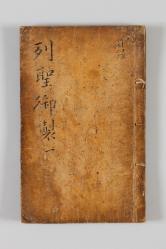 列聖御製 一